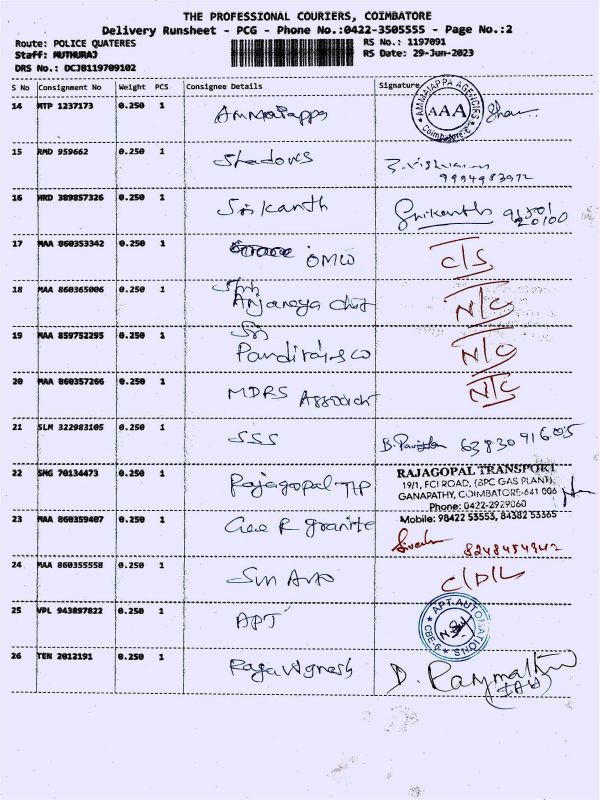 THE PROFESSIONAL COURIERS, COIMBATORE
Delivery Runsheet - PCG - Phone No.:0422-3505555 - Page No.:2
Route: POLICE QUATERES RS No.: 1197091
Staff: MUTHURAJ RS Date: 29-Jun-2023
DRS No.: DCJB119709102
S No Consignment No Weight PCS Consignee Details Signature
14 MTP 1237173 0.250 1 Ammaiappa AMMAIAPPA AGENCIES AAA Coimbatore-6
15 RMD 959662 0.250 1 Shadows
9994983972
16 HRD 389857326 0.250 1 Srikanth Srikanth
17 MAA 860353342 0.250 1 OMW C/S
18 MAA 860365006 0.250 1 Sri Anjaneya N/C
19 MAA 859752295 0.250 1 Sri N/C
20 MAA 860357266 0.250 1 MDRS N/C
21 SLM 322983105 0.250 1 SSS 6383091605
22 SMG 70134473 0.250 1 Rajagopal TP RAJAGOPAL TRANSPORT
19/1, FCI ROAD, (BPC GAS PLANT),
GANAPATHY, COIMBATORE-641 006
Phone: 0422-2929060
Mobile: 98422 53553, 84382 53365
23 MAA 860359407 0.250 1 Gee R granite
8248454942
24 MAA 860355558 0.250 1 C/D/L
25 VPL 943897822 0.250 1 APT APT AUTOMATIONS CBE-6
26 TEN 2012191 0.250 1 Raga vignesh